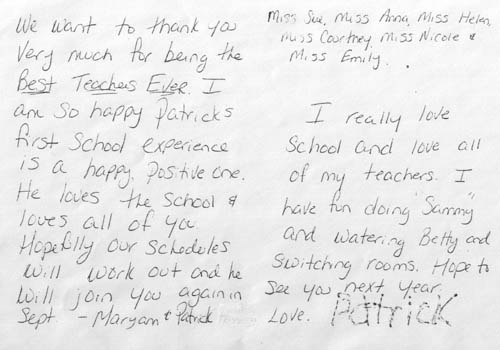 We want to thank you
very much for being the
Best Teachers Ever. I
am so happy Patricks
first School experience
is a happy, Positive one.
He loves the School &
loves all of you
Hopefully our schedules
will work out and he
will join you again in
Sept. - Maryam & Patrick
Miss Sue, Miss Anna, Miss Helen,
Miss Courtney, Miss Nicole &
Miss Emily.
I really love
School and love all
of my teachers. I
have fun doing "Sammy"
and watering Betty and
Switching rooms. Hope to
See you next year.
Love. Patrick